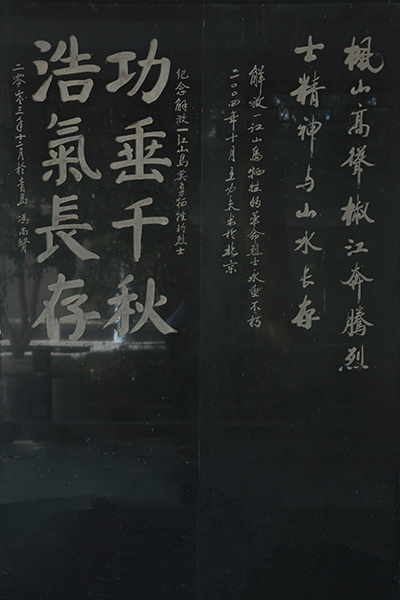 枫山高耸椒江奔腾烈
士精神与山水长存
解放一江山岛牺牲的革命烈士永垂不朽
二〇〇四年十月 于北京
功垂千秋
纪念解放一江山岛英勇牺牲的烈士
浩氣長存
二零零三年十二月於青岛 冯尚贤